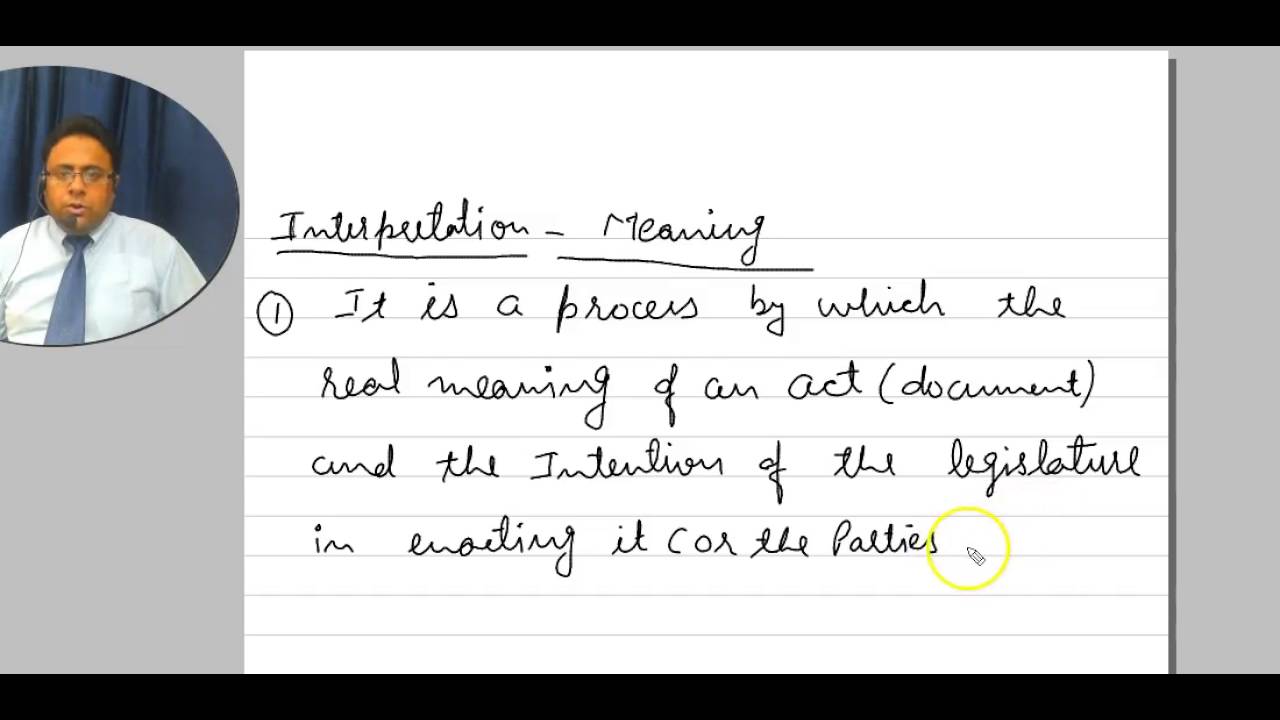 Interpretation - Meaning
① It is a process by which the
real meaning of an act (document)
and the Intention of the legislature
in enacting it (or the Parties